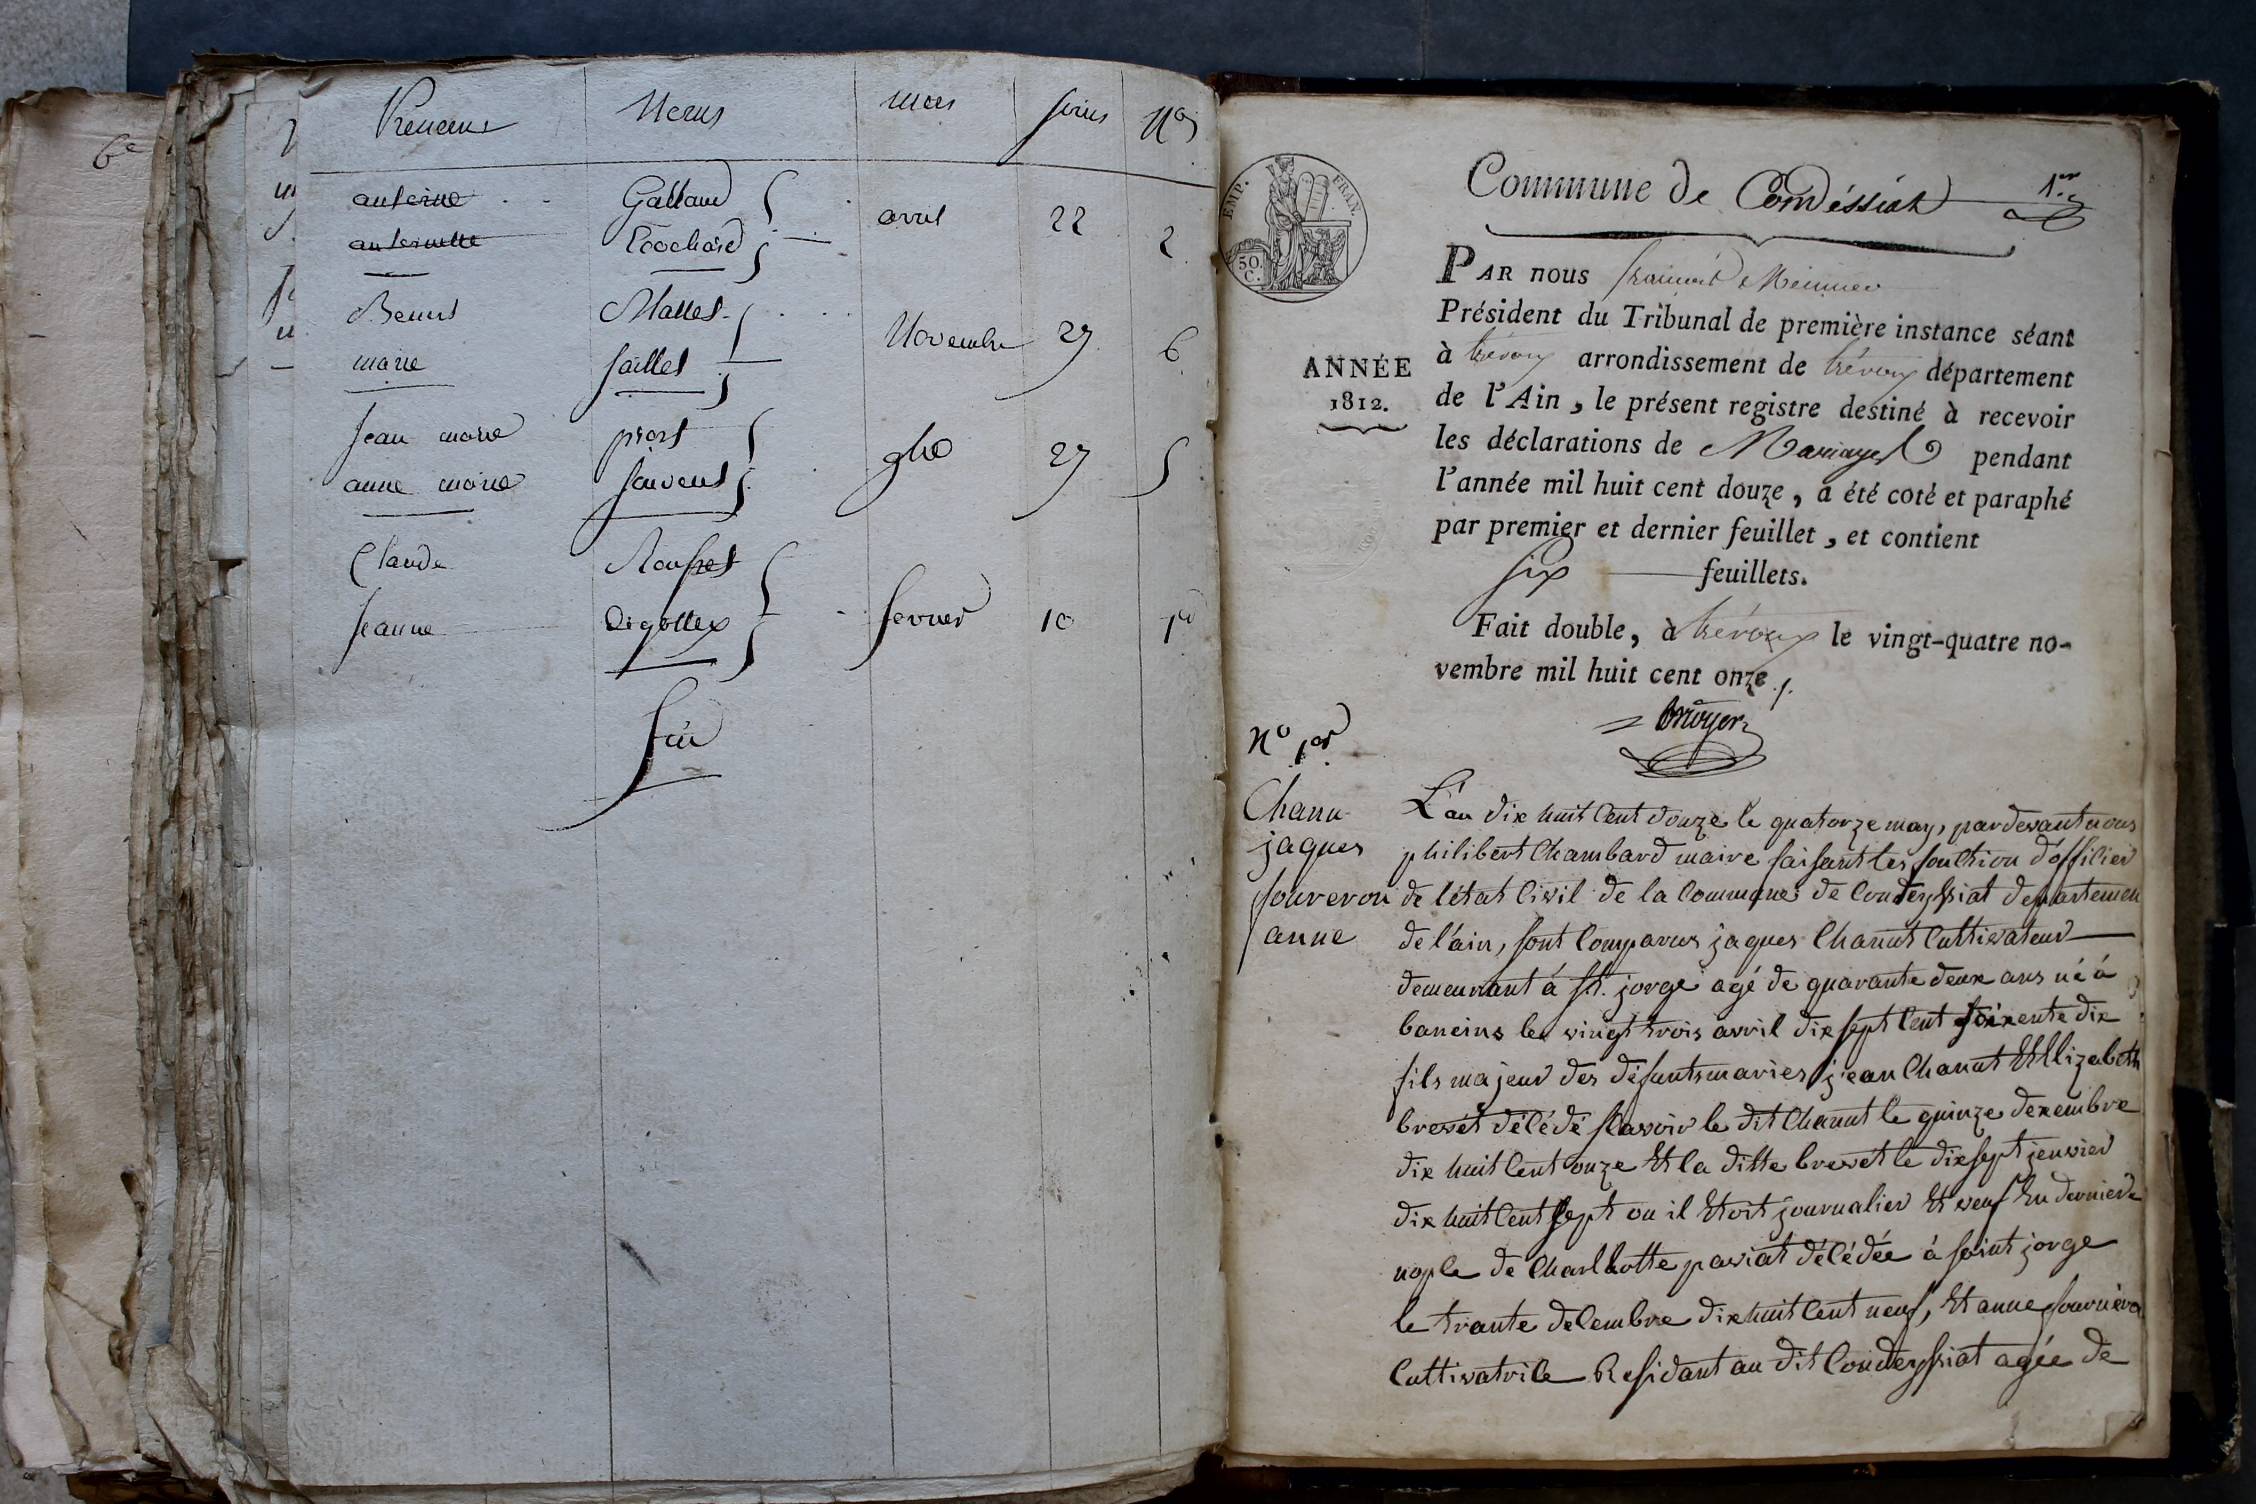 6e
Prenoms Noms mois jours Nos
antoine Gallaud
avril 22 2
antoinette Ecochard
Benoit Mallet
Novembre 27 6
marie
Jean marie
9bre 27 5
anne marie
Claude
Jeanne fevrier 10 1er
fin
Commune de Condéssiat 1er
EMP. FRAN.
50. C.
PAR nous
Président du Tribunal de première instance séant
à trévoux arrondissement de trévoux département
de l'Ain, le présent registre destiné à recevoir
les déclarations de Mariages pendant
l'année mil huit cent douze, a été coté et paraphé
par premier et dernier feuillet, et contient
six feuillets.
ANNÉE
1812.
Fait double, à trévoux le vingt-quatre no-
vembre mil huit cent onze ./.
No 1er
Chanu
jaques
anne
L'an dix huit Cent douze le quatorze may, pardevant nous
philibert Chambard maire faisant les fonction d'officier
de l'état Civil de la Commune de Condeyssiat departemen
de l'ain, sont Comparus jaques Chanut Cultivateur
demeurant á St. jorge agé de quarante deux ans né á
baneins le vingt trois avril dix sept Cent soixente dix
fils majeur des défunts maries jean Chanut Et Elizabeth
brevét décédé scavoir le dit Chanut le quinze dexembre
dix huit Cent onze Et la ditte brevét le dix sept jenvier
dix huit Cent sept ou il Etoit journalier Et veuf En derniere
nople de Charllotte paviat décédée á saint jorge
le trante decembre dix huit Cent neuf, Et anne
Cultivatrice Residant au dit Condeyssiat agée de